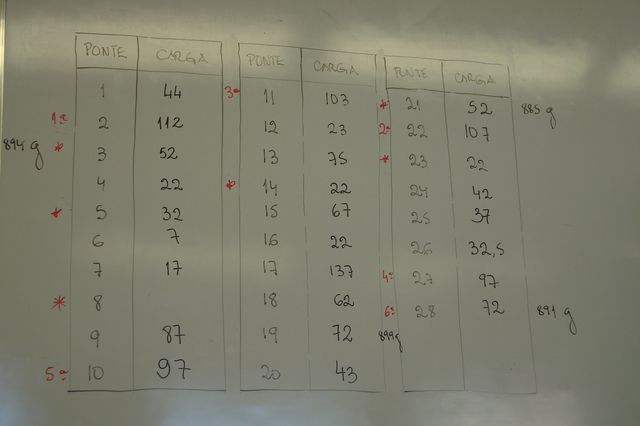 PONTE CARGA
1 44
1ª 2 112
894 g * 3 52
4 22
* 5 32
6 7
7 17
* 8
9 87
5ª 10 97
PONTE CARGA
3ª 11 103
12 23
13 75
* 14 22
15 67
16 22
17 137
18 62
19 72 899g
20 43
PONTE CARGA
* 21 52 885 g
2ª 22 107
* 23 22
24 42
25 37
26 32,5
4ª 27 97
6ª 28 72 891 g